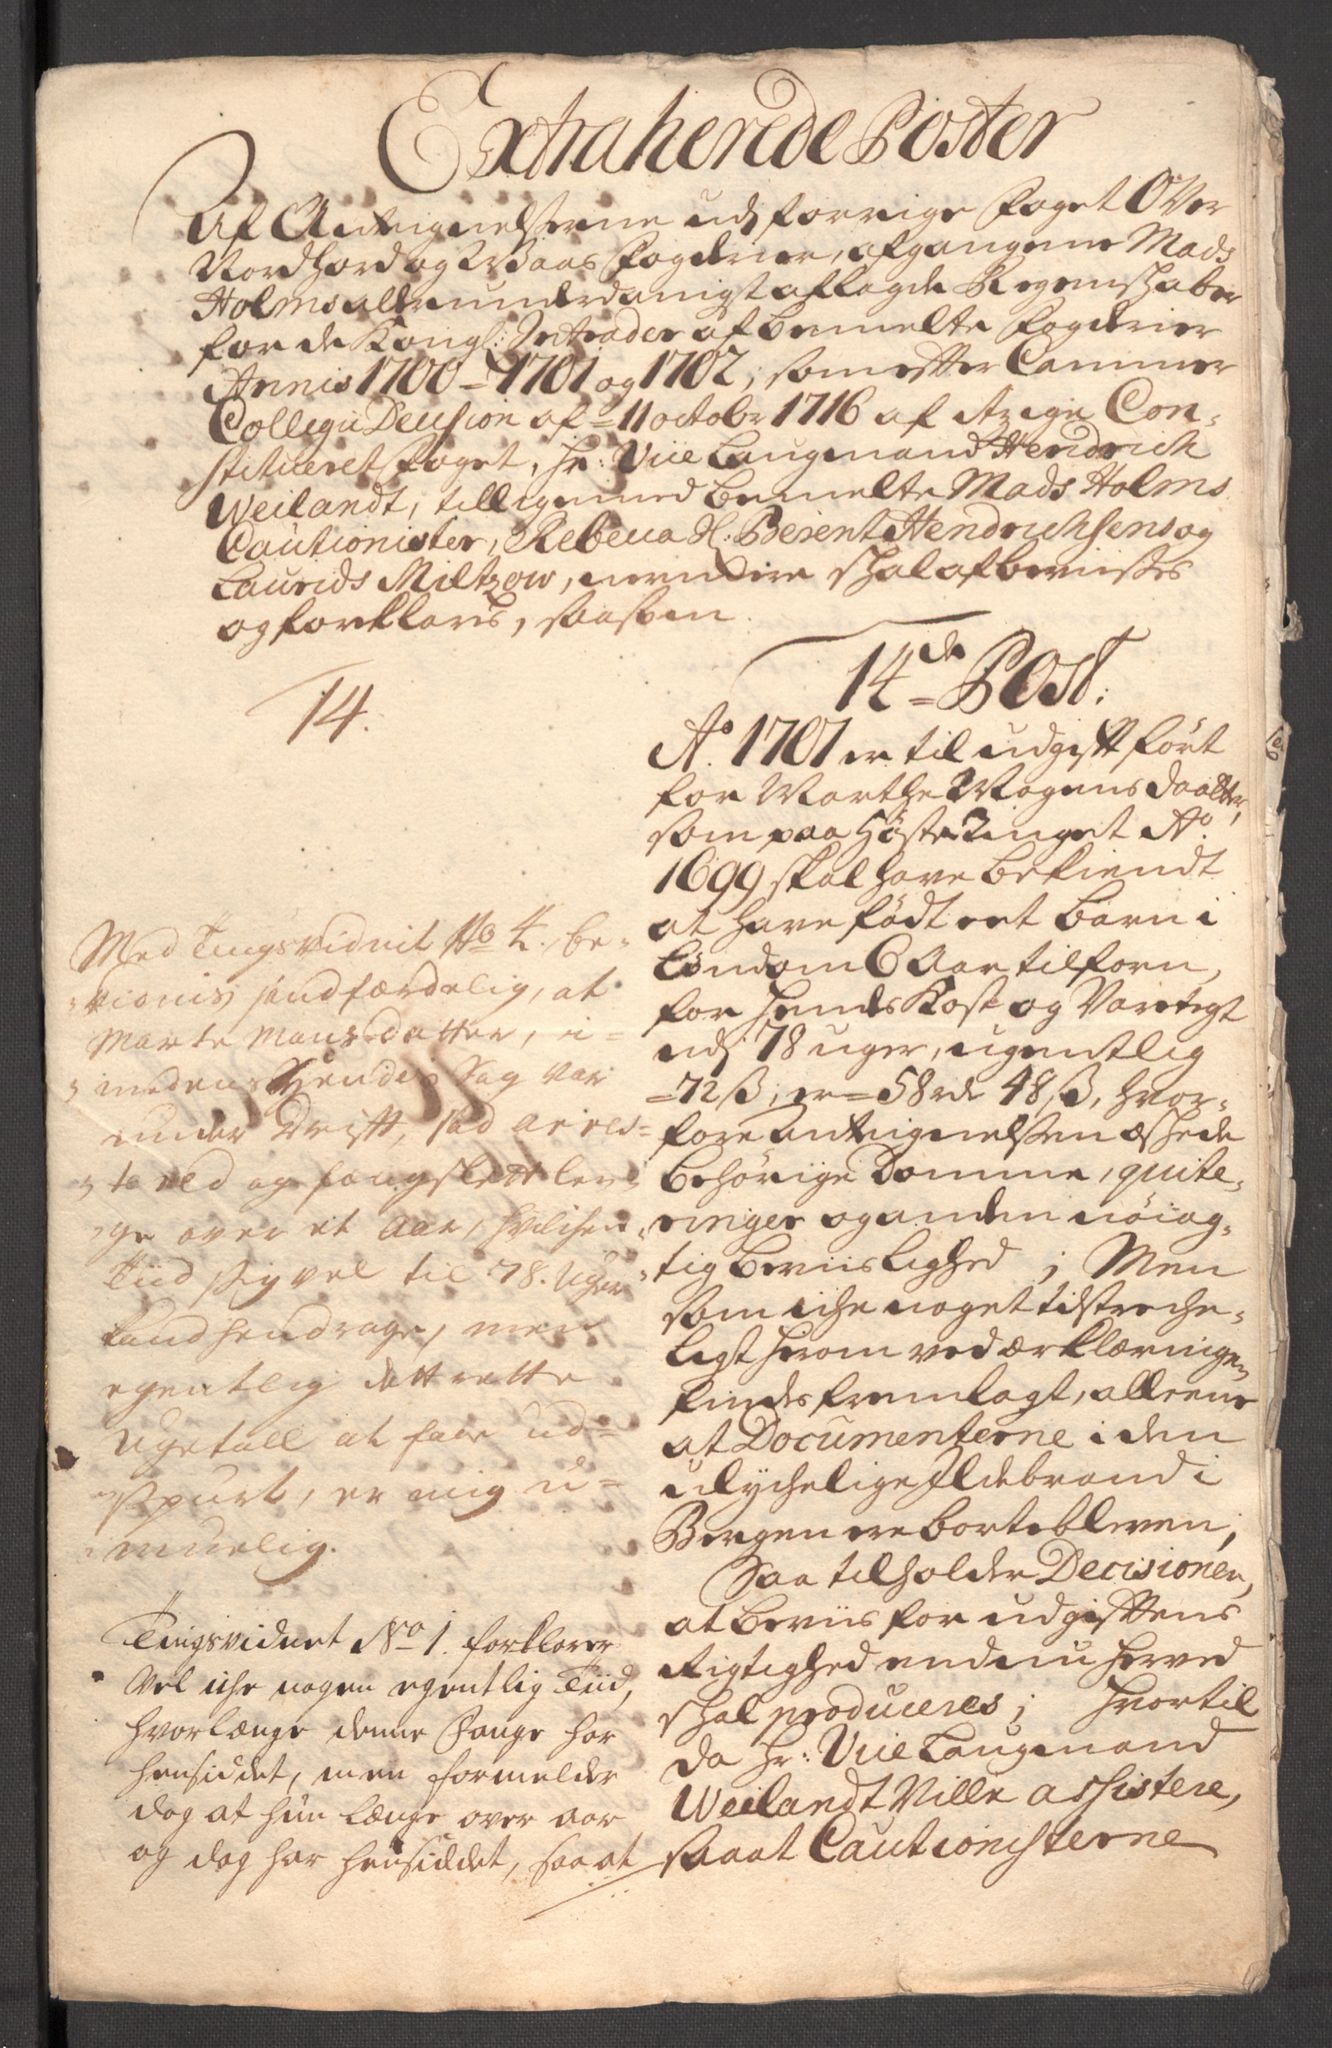 Extraherede Poster
Af Antegnelserne udj forrige Foget Over
Nordhord og Waas Fogderier, afgangene Mads
Holms allerunderdanigst aflagde Regenskaber
for de Kongl: Intrader af bemelte Fogderier
Annis 1700 - 1701 og 1702, som efter Cammer
Collegii Decision af 11 octobr 1716 af itzige Con-
stitueret Foget, Hr: Viie Laugmand Hendrich
Weilandt, tilligemed bemelte Mads Holms
Cautionister, Rebecca Sl. Beient Hendrichsens og
Laurids Miltzow, nermere skal afbevisses
og forklaris, saasom
14.
14de Post:
Ao. 1701 er til udgifft ført
for Marthe Mogens daatter,
som paa Høste Tinget Ao.
1699 skal have bekiendt
at have født eet barn i
Løndom 6 Aar tilforn,
for hendes Kost og Varetegt
udj 78 uger, ugentlig
72 ß, er 58 rdr 48 ß, hvor-
fore Antegnelsen æskede
behørige Domme, quite-
ringer og anden nøiag-
tig beviislighed; Men
som iche noget tilstreche-
ligt herom ved ærklæringen
findes fremlagt, alleene
at Documenterne i den
ulychelige Ildebrand i
Bergen ere borteblevne,
Saa tilholder Decisionen,
at beviis for udgifftens
Rigtighed endnu herved
skal produceres; hvortil
da Hr: Viie Laugmand
Weilandt Ville assistere,
saaat Cautionisterne
Med Tingsvidnit No 4. be-
vionis sandfærdelig, at
Marte Mansdatter, i-
medens Hendes Sag var
under Drifft, sad arres-
tered og fengslett len-
ge over et Aar, hvilchen
Tiid sig vel til 78. Uger
kand hendrage, men
egentlig dett rette
Ugetall at faae ud-
spurt, er mig u-
muelig.
Tingsvidnet No 1. forklarer
Vel iche nogen egentlig Tiid,
hvorlænge denne Fange har
hensiddet, men formelder
dog at hun længe over aar
og dag har hensiddet, saa at